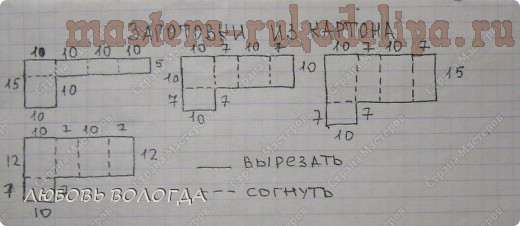 ЗАГОТОВКИ ИЗ КАРТОНА
www.masterim-rukodelnica.ru
10 10 10 10
5
15
10
10
10 7 10 10
10
10
7
7
10
10 7 10 7
15
7
7
10
10 7 10 7
12
12
7
7
10
ВЫРЕЗАТЬ
СОГНУТЬ
ЛЮБОВЬ ВОЛОГДА
Страна Мастеров